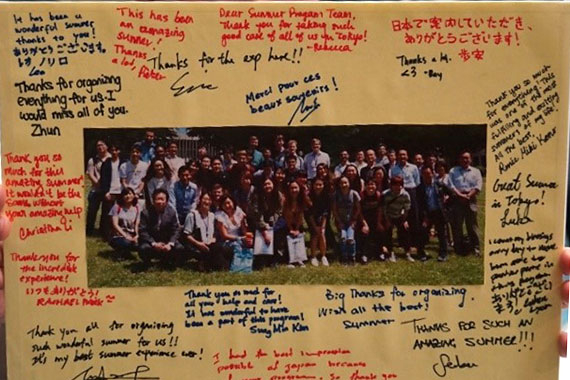 It has been a
wonderful summer
thanks to you!
ありがとうございます。
Leo
This has been
an amazing
summer!
Thanks
a lot, Peter
Dear Summer Program Team,
Thank you for taking such
good care of all of us in Tokyo!
-Rebecca
日本で案内していただき、
ありがとうございます!
Thanks a lot.
<3 -Roy
Thanks for the exp here!!
Eric
Merci pour ces
beaux souvenirs!
Thanks for organizing
everything for us. I
would miss all of you.
Zhun
Thank you so much
for everything! This
was one of the most
fulfilling and exciting
summers of my life!
All the best,
Thank you so
much for this
amazing summer!
It wouldn't be the
same without
your amazing help
Christina Li
Great Summer
in Tokyo!
Lukas
Thank you
for the incredible
experience!
いつもありがとう!
I count my blessings
every day to have
been able to
Thank you so much for
all your help and care!
It was wonderful to have
been a part of this program!
Sung Min Kim
Big Thanks for organizing.
Wish all the best!
Summer
THANKS FOR SUCH AN
AMAZING SUMMER!!!
Thank you all for organizing
such wonderful summer for us!!
It's my best summer experience ever!
I had the best impression
possible of Japan because
programme. So thank you